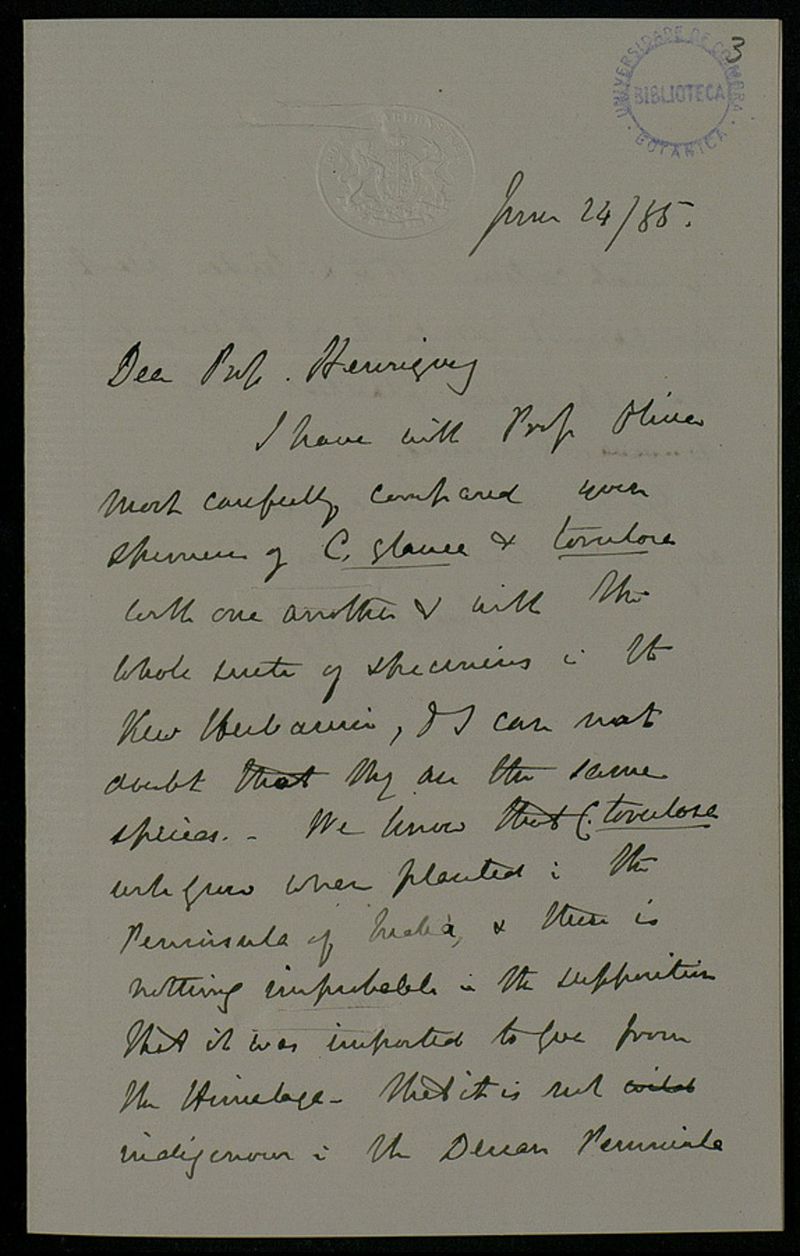 3
UNIVERSIDADE DE COIMBRA
BIBLIOTECA
BOTANICA
June 24/85.
Dear Prof. Henriques
I have with Prof Oliver
most carefully compared your
specimens of C. glauca & torulosa
with one another & with the
whole suite of specimens in the
Kew Herbarium, & I can not
doubt that they are the same
species. - We know that C. torulosa
will grow when planted in the
Peninsula of India, & there is
nothing improbable in the supposition
that it was imported to Goa from
the Himalaya - that it is not wild
indigenous in the Deccan Peninsula